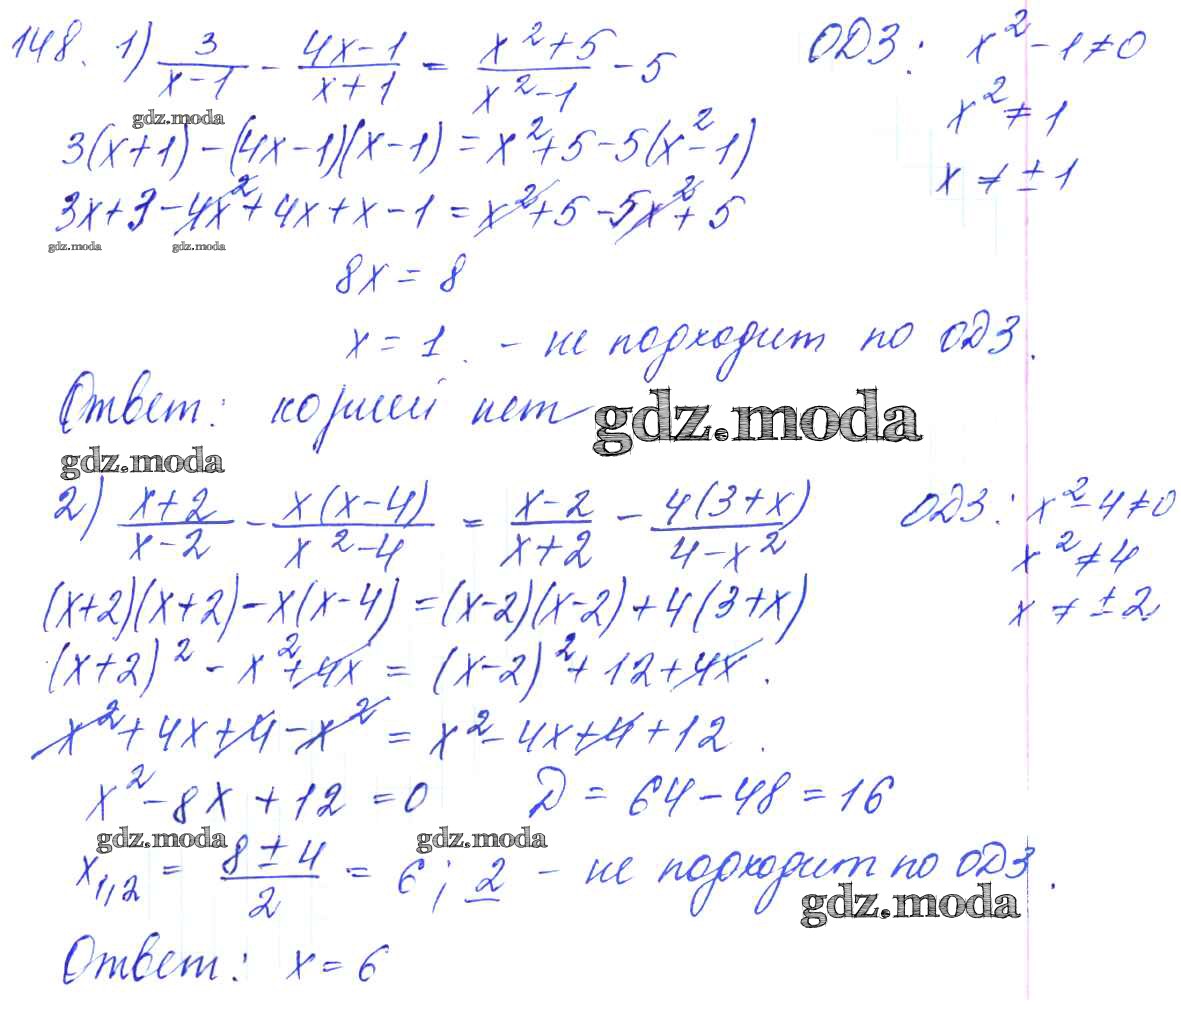 148. 1) 3/(x-1) - (4x-1)/(x+1) = (x²+5)/(x²-1) - 5 ОДЗ: x²-1≠0
gdz.moda x²≠1
3(x+1)-(4x-1)(x-1)=x²+5-5(x²-1)
x≠±1
3x+3-4x²+4x+x-1=x²+5-5x²+5
gdz.moda gdz.moda
8x=8
x=1. - не подходит по ОДЗ.
Ответ: корней нет gdz.moda
gdz.moda
2) (x+2)/(x-2) - x(x-4)/(x²-4) = (x-2)/(x+2) - 4(3+x)/(4-x²) ОДЗ: x²-4≠0
x²≠4
(x+2)(x+2)-x(x-4)=(x-2)(x-2)+4(3+x) x≠±2.
(x+2)²-x²+4x=(x-2)²+12+4x.
x²+4x+4-x²=x²-4x+4+12.
x²-8x+12=0 D=64-48=16
gdz.moda gdz.moda
x1,2 = (8±4)/2 = 6; 2 - не подходит по ОДЗ.
gdz.moda
Ответ: x=6